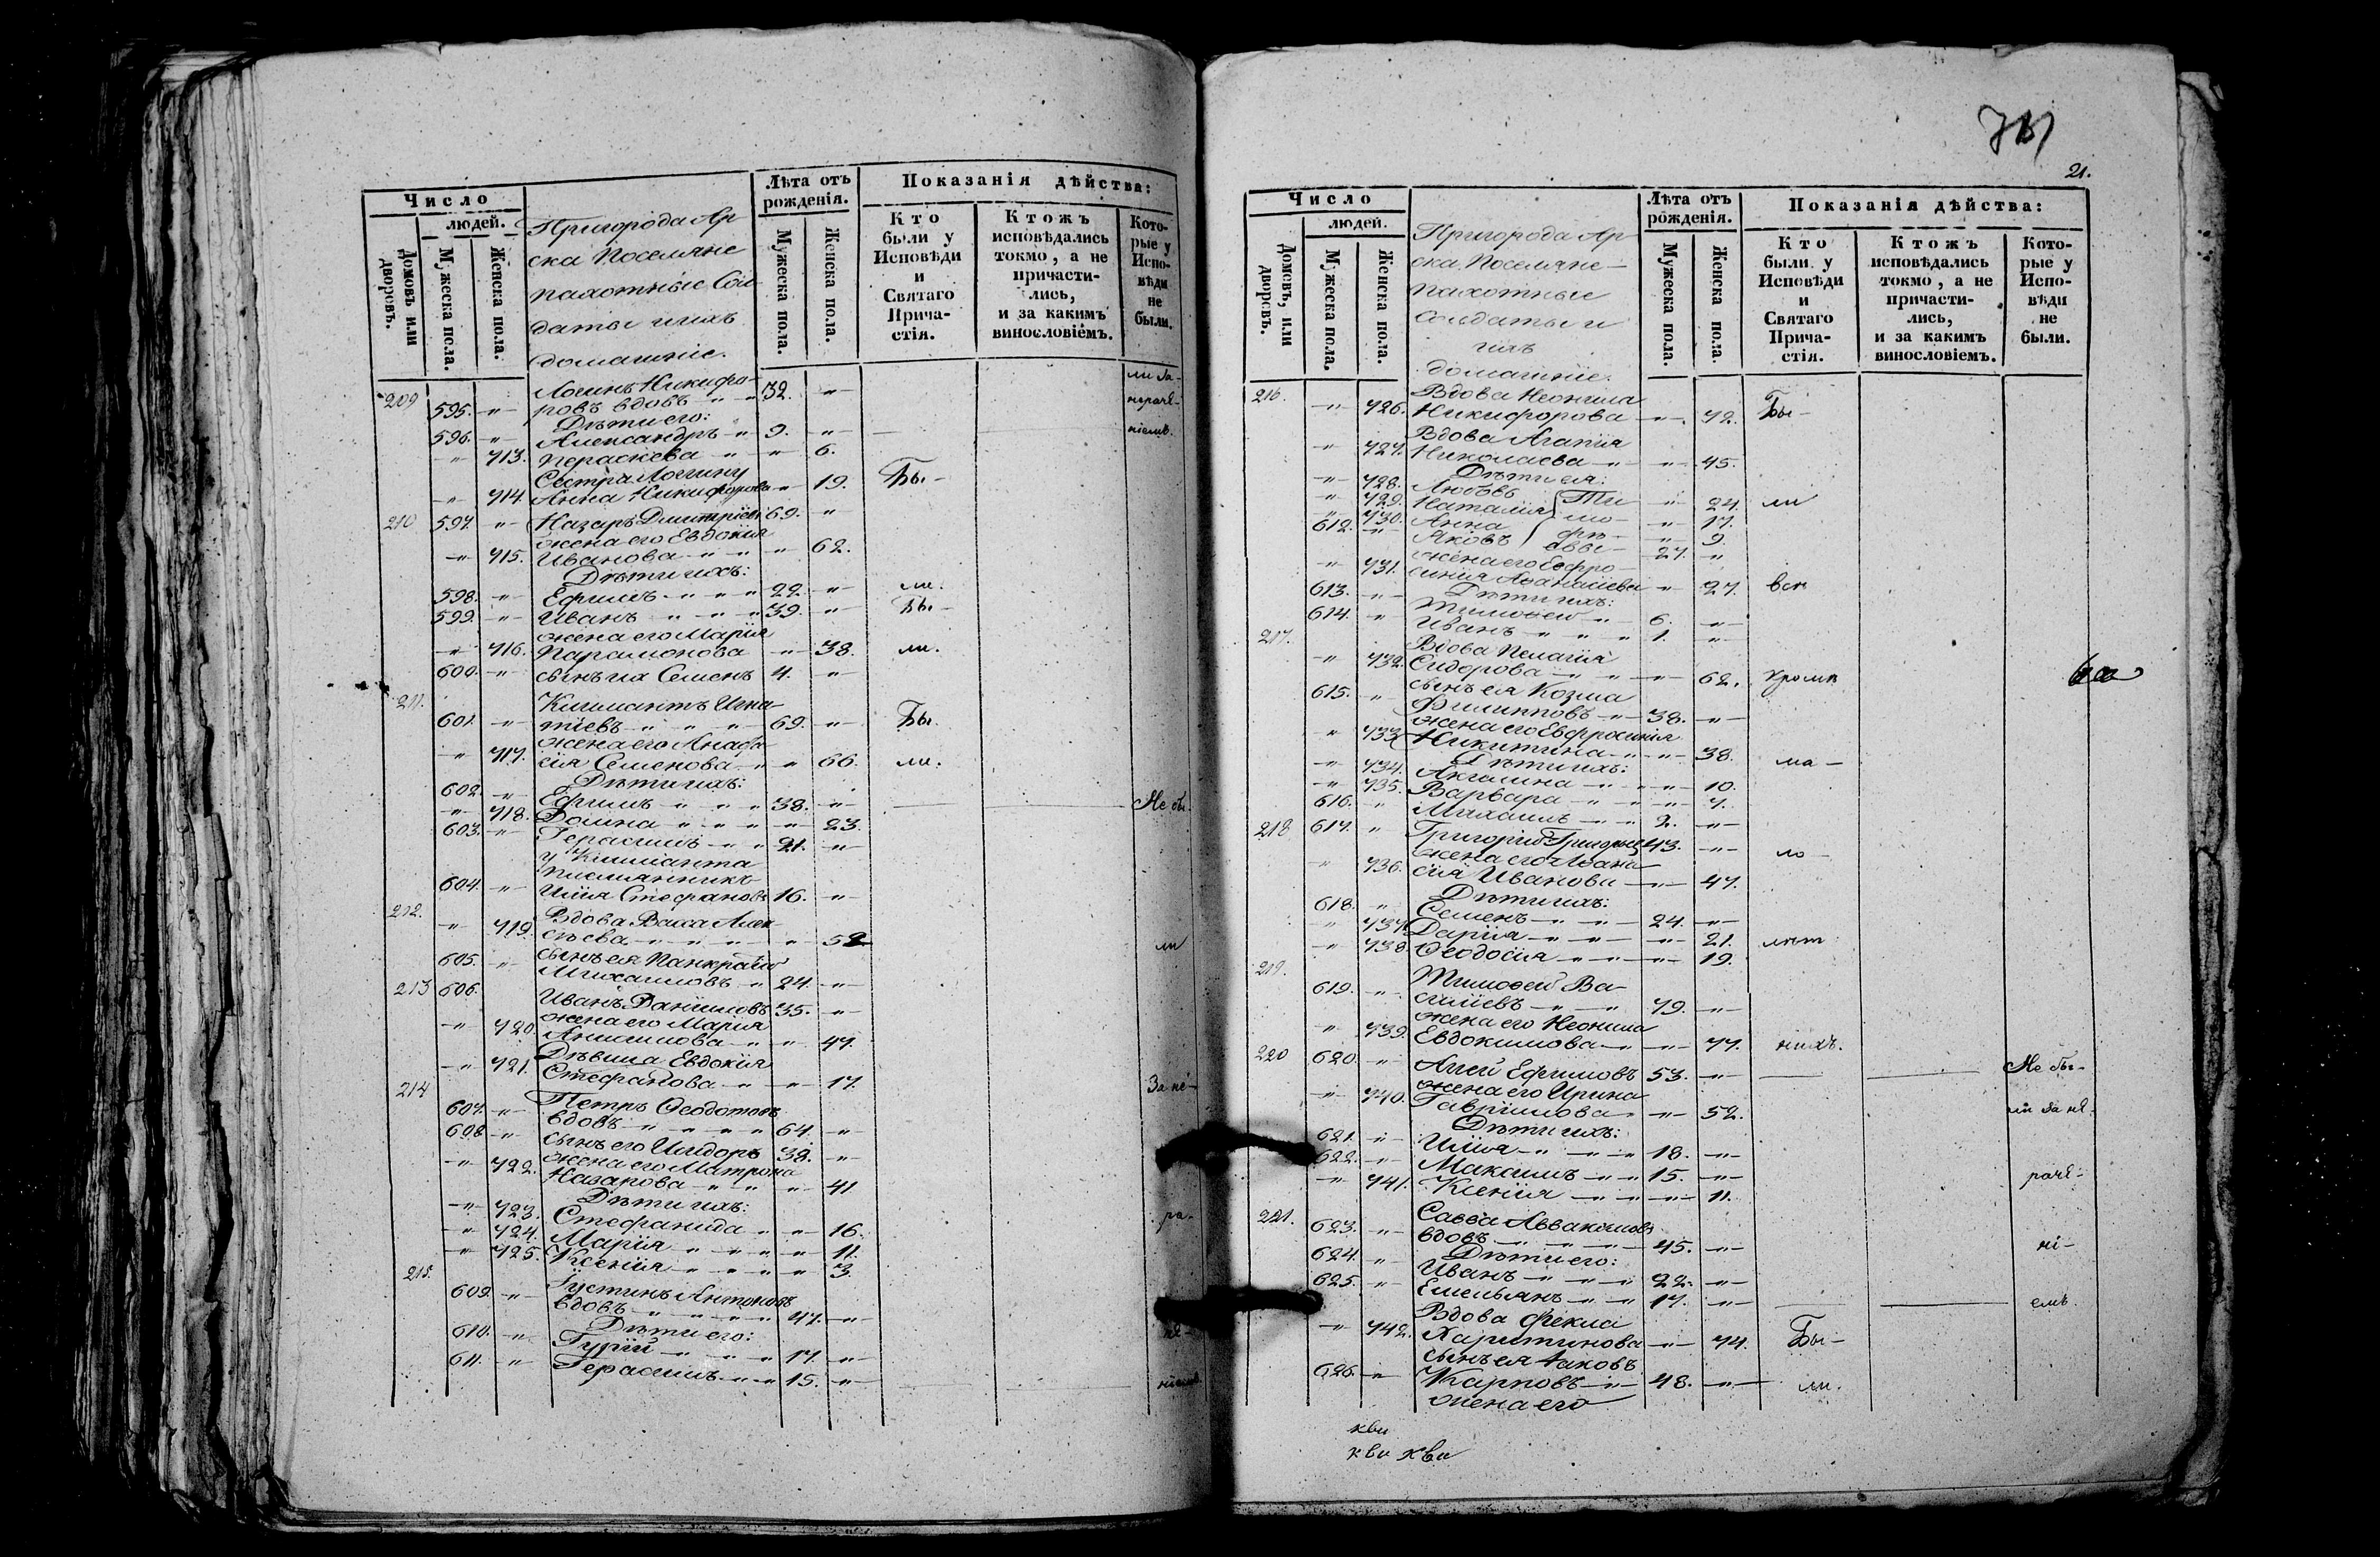 Число
людей.
Домовъ или дворовъ.
Мужеска пола.
Женска пола.
Пригорода Ар-
ска Поселяне
пахотные Сол-
даты и ихъ
домашніе.
Лѣта отъ рожденія.
Мужеска пола.
Женска пола.
Показанія дѣйства:
Кто были у Исповѣди и Святаго Прича-стія.
Ктожъ исповѣдались токмо, а не причасти-лись, и за какимъ винословіемъ.
Кото-рые у Испо-вѣди не были.
209 595. -"- Логинъ Никифо-
ровъ вдовъ " " 32. -"- ли за-
Дѣти его: нерачѣ-
596. -"- Александръ " 9. -"- ніемъ.
-"- 713. Параскева " " 6.
Сестра Логину
-"- 714. Анна Никифорова -"- 19. Бы-
210 597. -"- Назаръ Дмитріевъ 69. -"-
жена его Евдокія
-"- 715. Иванова " " " 62.
Дѣти ихъ:
598. -"- Ефимъ " " " 22. -"- ли.
599. -"- Иванъ " " " 39. -"- Бы-
жена его Марія
-"- 716. Парамонова -"- 38. ли.
600. -"- сынъ их Семенъ 4. -"-
211. Климантъ Игна-
601. -"- тіевъ " " " 69. -"- Бы.
жена его Анаста-
-"- 717. сія Семенова " " 66. ли.
Дѣти ихъ:
602. -"- Ефимъ " " " 38. -"- Не бы-
-"- 718. Домна " " " " 23.
603. -"- Герасимъ " " 21. -"-
у Климанта
племянникъ
604. -"- Илія Стефановъ 16. -"-
212. Вдова Васса Алек-
-"- 719. сѣева " " " " 52 ли
605. -"- сынъ ея Панкратій
Михаиловъ " 24. -"-
213 606. Иванъ Даниловъ 35. -"-
жена его Марія
-"- 720. Анисимова " " 47.
Дѣвица Евдокія
-"- 721. Стефанова " " 17.
214 Петръ Ѳеодотовъ За не-
607. -"- вдовъ " " " " 64. -"-
608. -"- сынъ его Исидоръ 38. -"-
жена его Матрона
-"- 722. Назарова " " " 41
Дѣти ихъ:
-"- 723. Стефанида " " 16. ра-
-"- 724. Марія " " " " 11.
-"- 725. Ксенія " " " " 3.
215. Іустинъ Антоновъ
609. -"- вдовъ " " " 47. -"-
Дѣти его:
610. -"- Гурій " " " 17. -"- чѣ-
611. -"- Герасимъ " " 15. -"- ніемъ.
21.
Число
людей.
Домовъ, или дворовъ.
Мужеска пола.
Женска пола.
Пригорода Ар-
ска, Поселяне
пахотные
Солдаты и
ихъ
домашніе.
Лѣта отъ рожденія.
Мужеска пола.
Женска пола.
Показанія дѣйства:
Кто были у Исповѣди и Святаго Прича-стія.
Ктожъ исповѣдались токмо, а не причасти-лись, и за какимъ винословіемъ.
Кото-рые у Испо-вѣди не были.
216. Вдова Неонила
-"- 726. Никифорова -"- 72. Бы-
Вдова Агапія
-"- 727. Николаева " " 45.
Дѣти ея:
-"- 728. Любовь Ти- " 24. ли
-"- 729. Наталія мо- " 17.
-"- 730. Анна фѣ- " 9.
612. -"- Яковъ евы- 27. "
жена его Евфро-
-"- 731. синія Аѳанасіева " 27. всѣ
Дѣти ихъ:
613. -"- Тимоѳей " 6. -"-
614. -"- Иванъ " " " 1. -"-
217. Вдова Пелагія
-"- 732. Сидорова " " " 62. кромѣ
615. " сынъ ея Козма
Филипповъ " 38. -"-
жена его Евфросинія
" 733 Никитина " " 38. ма-
Дѣти ихъ:
-"- 734. Акилина " " " 10.
-"- 735. Варвара " " " 7.
616. " Михаилъ " " 2. -"-
218 617. " Григорій Григорьев 43. -"- ло-
жена его Аѳана-
" 736. сія Иванова -"- 47.
Дѣти ихъ:
618. " Семенъ " " 24. -"-
" 737 Дарія " " " 21. лѣт
-"- 738. Ѳеодосія " " " 19.
219. Тимоѳей Ва-
619. -"- силіевъ " " 79. -"-
жена его Неонила
-"- 739. Евдокимова " " 77. нихъ.
220 620. -"- Агей Ефимовъ 53. -"- Не бы-
жена его Ирина
-"- 740. Гавріилова " " 52. ли за не-
Дѣти ихъ:
621. -"- Илія " " " 18. -"-
622. -"- Максимъ " " 15. -"- рачѣ-
-"- 741. Ксенія " " " 11.
221. Савва Аввакумовъ
623. -"- вдовъ " " " 45. -"- ні-
Дѣти его:
624. " Иванъ " " " 22. -"-
625. " Емельянъ " " 17. -"- емъ.
Вдова Фекла
-"- 742. Харитинова -"- 74. Бы-
сынъ ея Іаковъ
626. -"- Карповъ " 48. -"- ли.
жена его
кви
кви кви